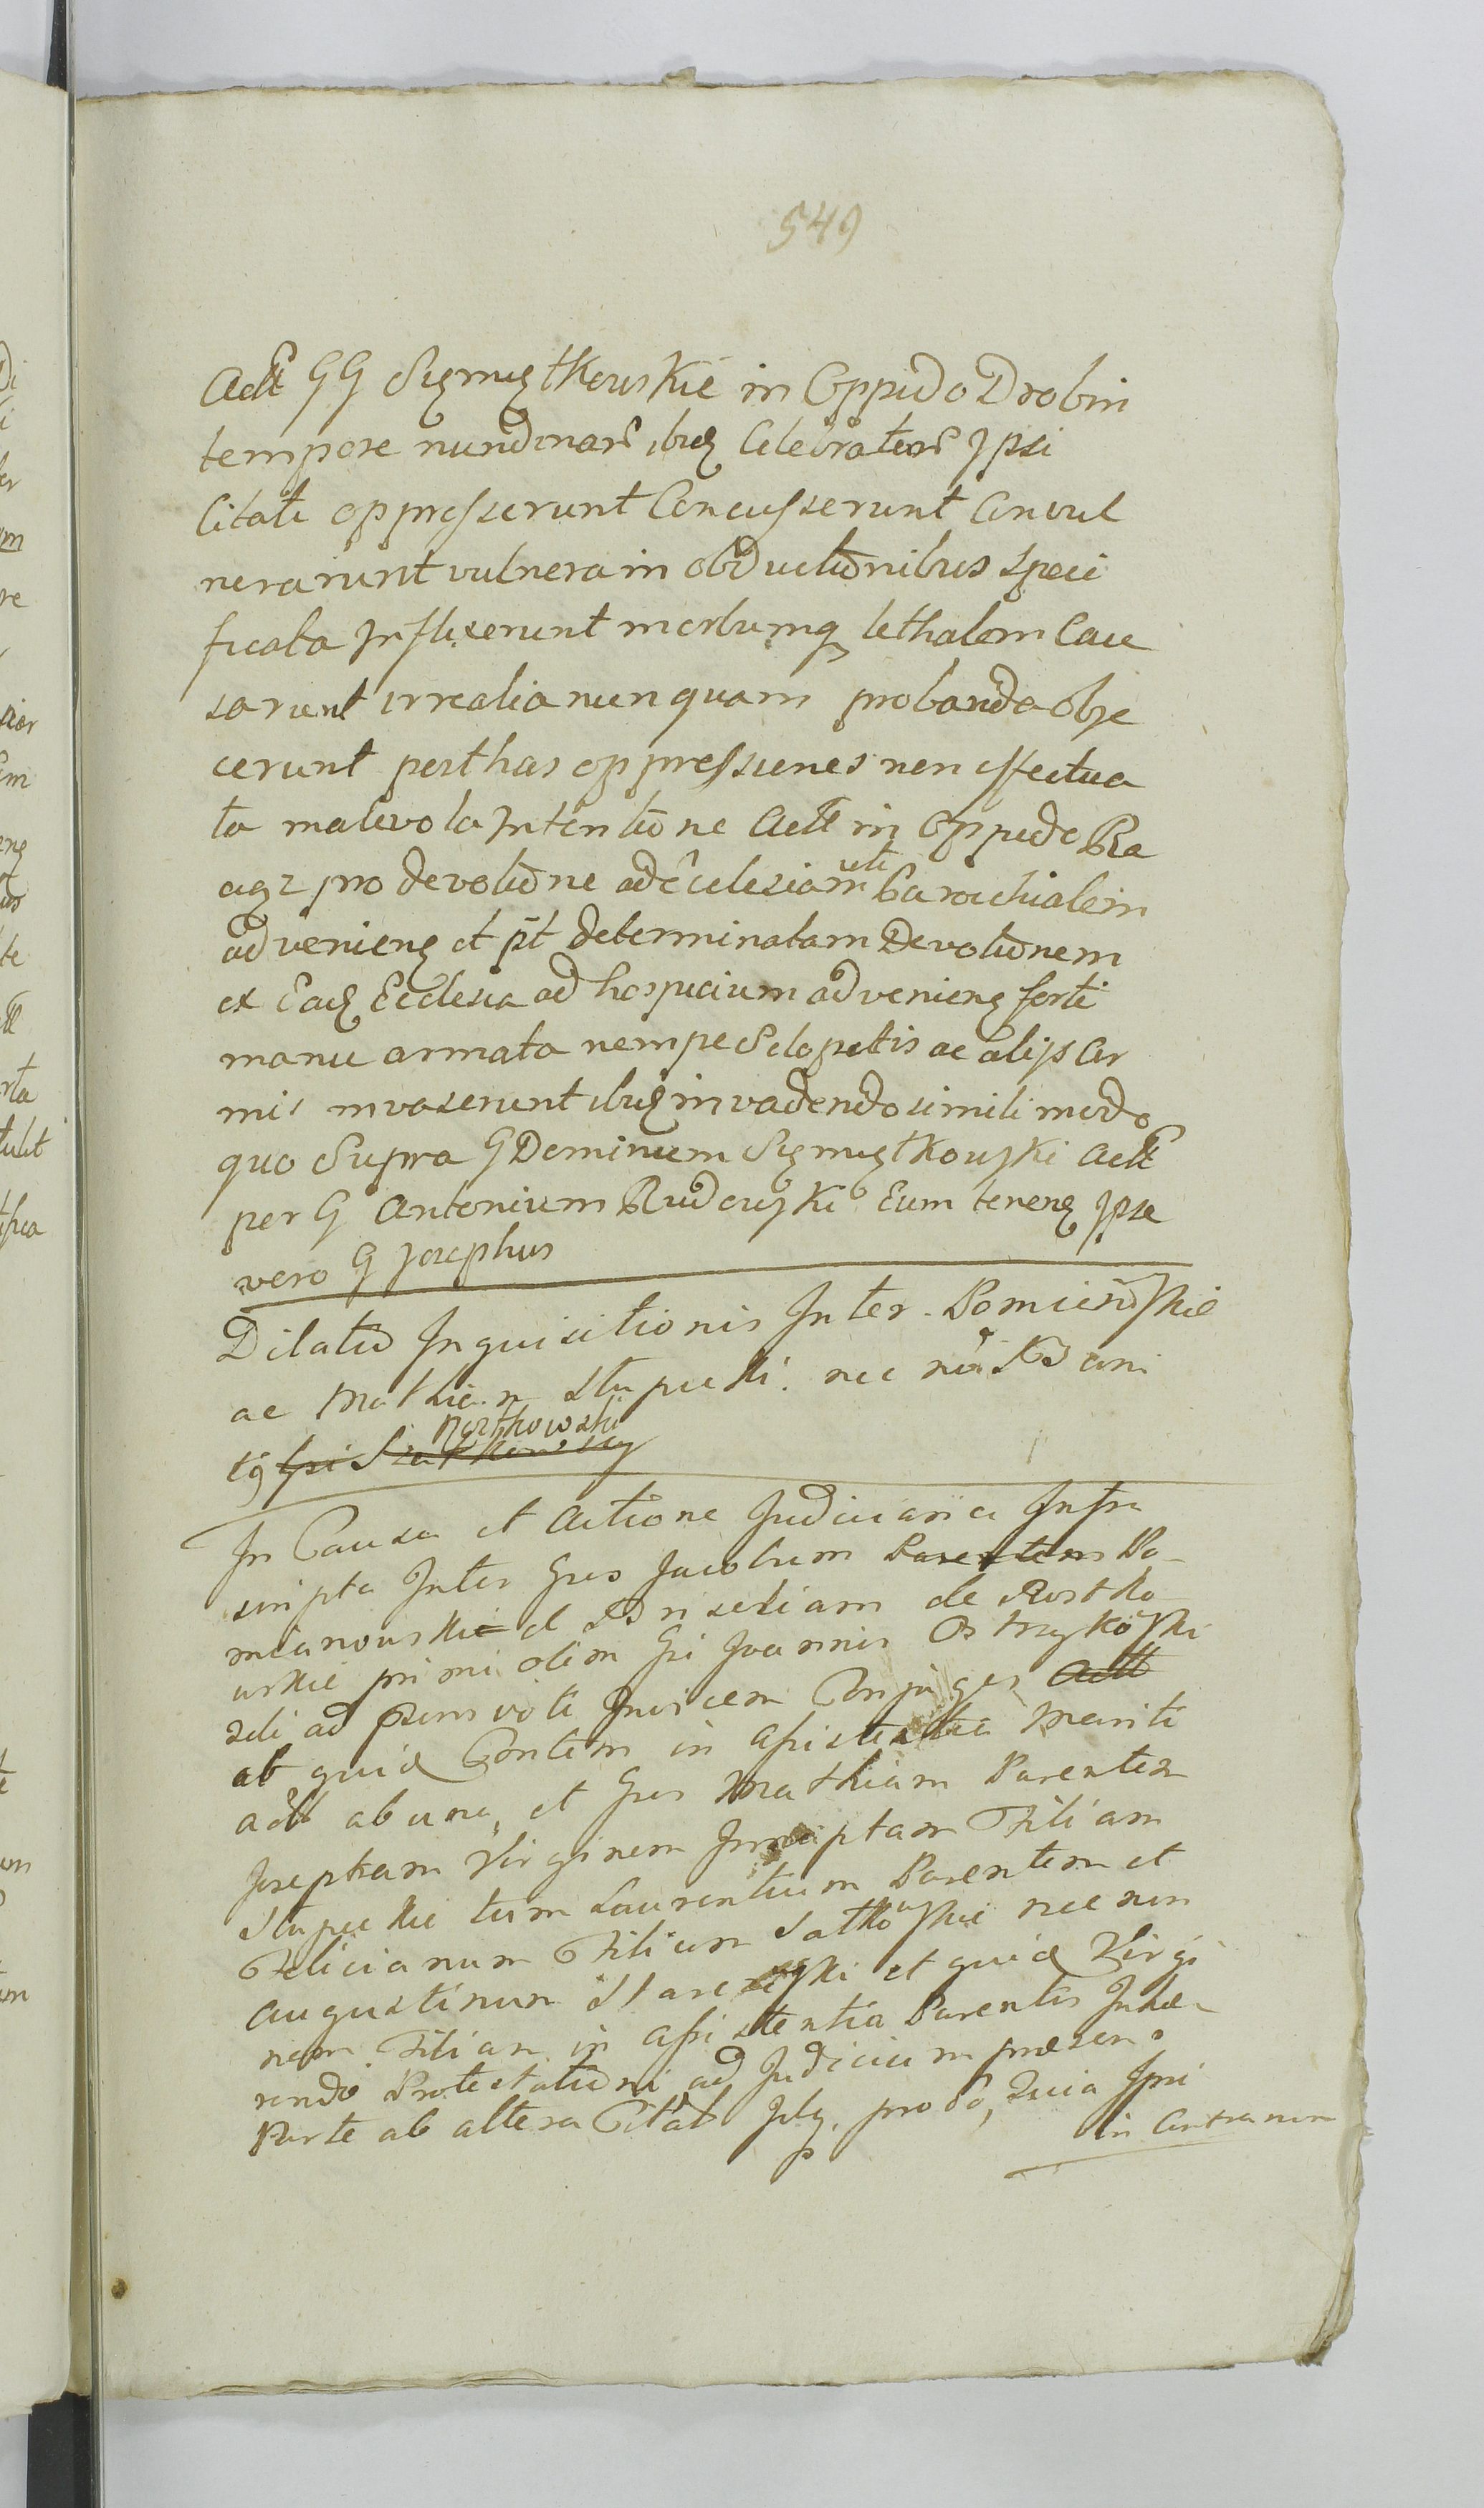 549
Actt GG Sięmiętkowskie in Oppido Drobin
tempore nundinar ibid Celebratar Ipsi
Citati oppresserunt Concusserunt Convul
nerarunt vulnera in obductionibus speci
ficata Inflixerunt morbumq lethalem Cau
sarunt irrealia nunquam probanda obje
cerunt post has oppressiones non effectua
ta malevola Intentione Actt in Oppido Ra
ciąz pro devotione ad Ecclesiam Parochialem
adveniens et pt determinatam Devotionem
ex Eadq Ecclesia ad hospicium adveniens forti
manu armata nempe Sclopetis ac alijs ar
mis invaserunt ibidq invadendo simili modo
quo Supra G Dominum Sięmiętkowski Actt
per G Antonium Rudowski Eum tenens Ipse
vero G Josephus
Dilatio Inquisitionis Inter Pomianowskie
ac Mathiam Stupecki nec non
Rostkowski
In Causa et Actione Judiciaria Infra
scripta Inter Gres Jacobum Parentem Po-
mianowskie et de Rostko
wskie primi olim Gi Joannis Ostrzykowski
2di ad praesens voti Invicem Conjuges Actt
ab quid Contem in assistentia Mariti
Actt ab una, et Gres Mathiam Parentem
Josepham Virginem Inscriptam Filiam
Stupeckie tum Laurentium Parentem et
Felicianum Filium Satkowskie nec non
Augustinum et quid Virgi
nem Filiam in assistentia Parentis Inhae-
rendo Protestationi ad Judicium praesen
Parte ab altera Citat pro eo, Quia Ipsi
in Contranum